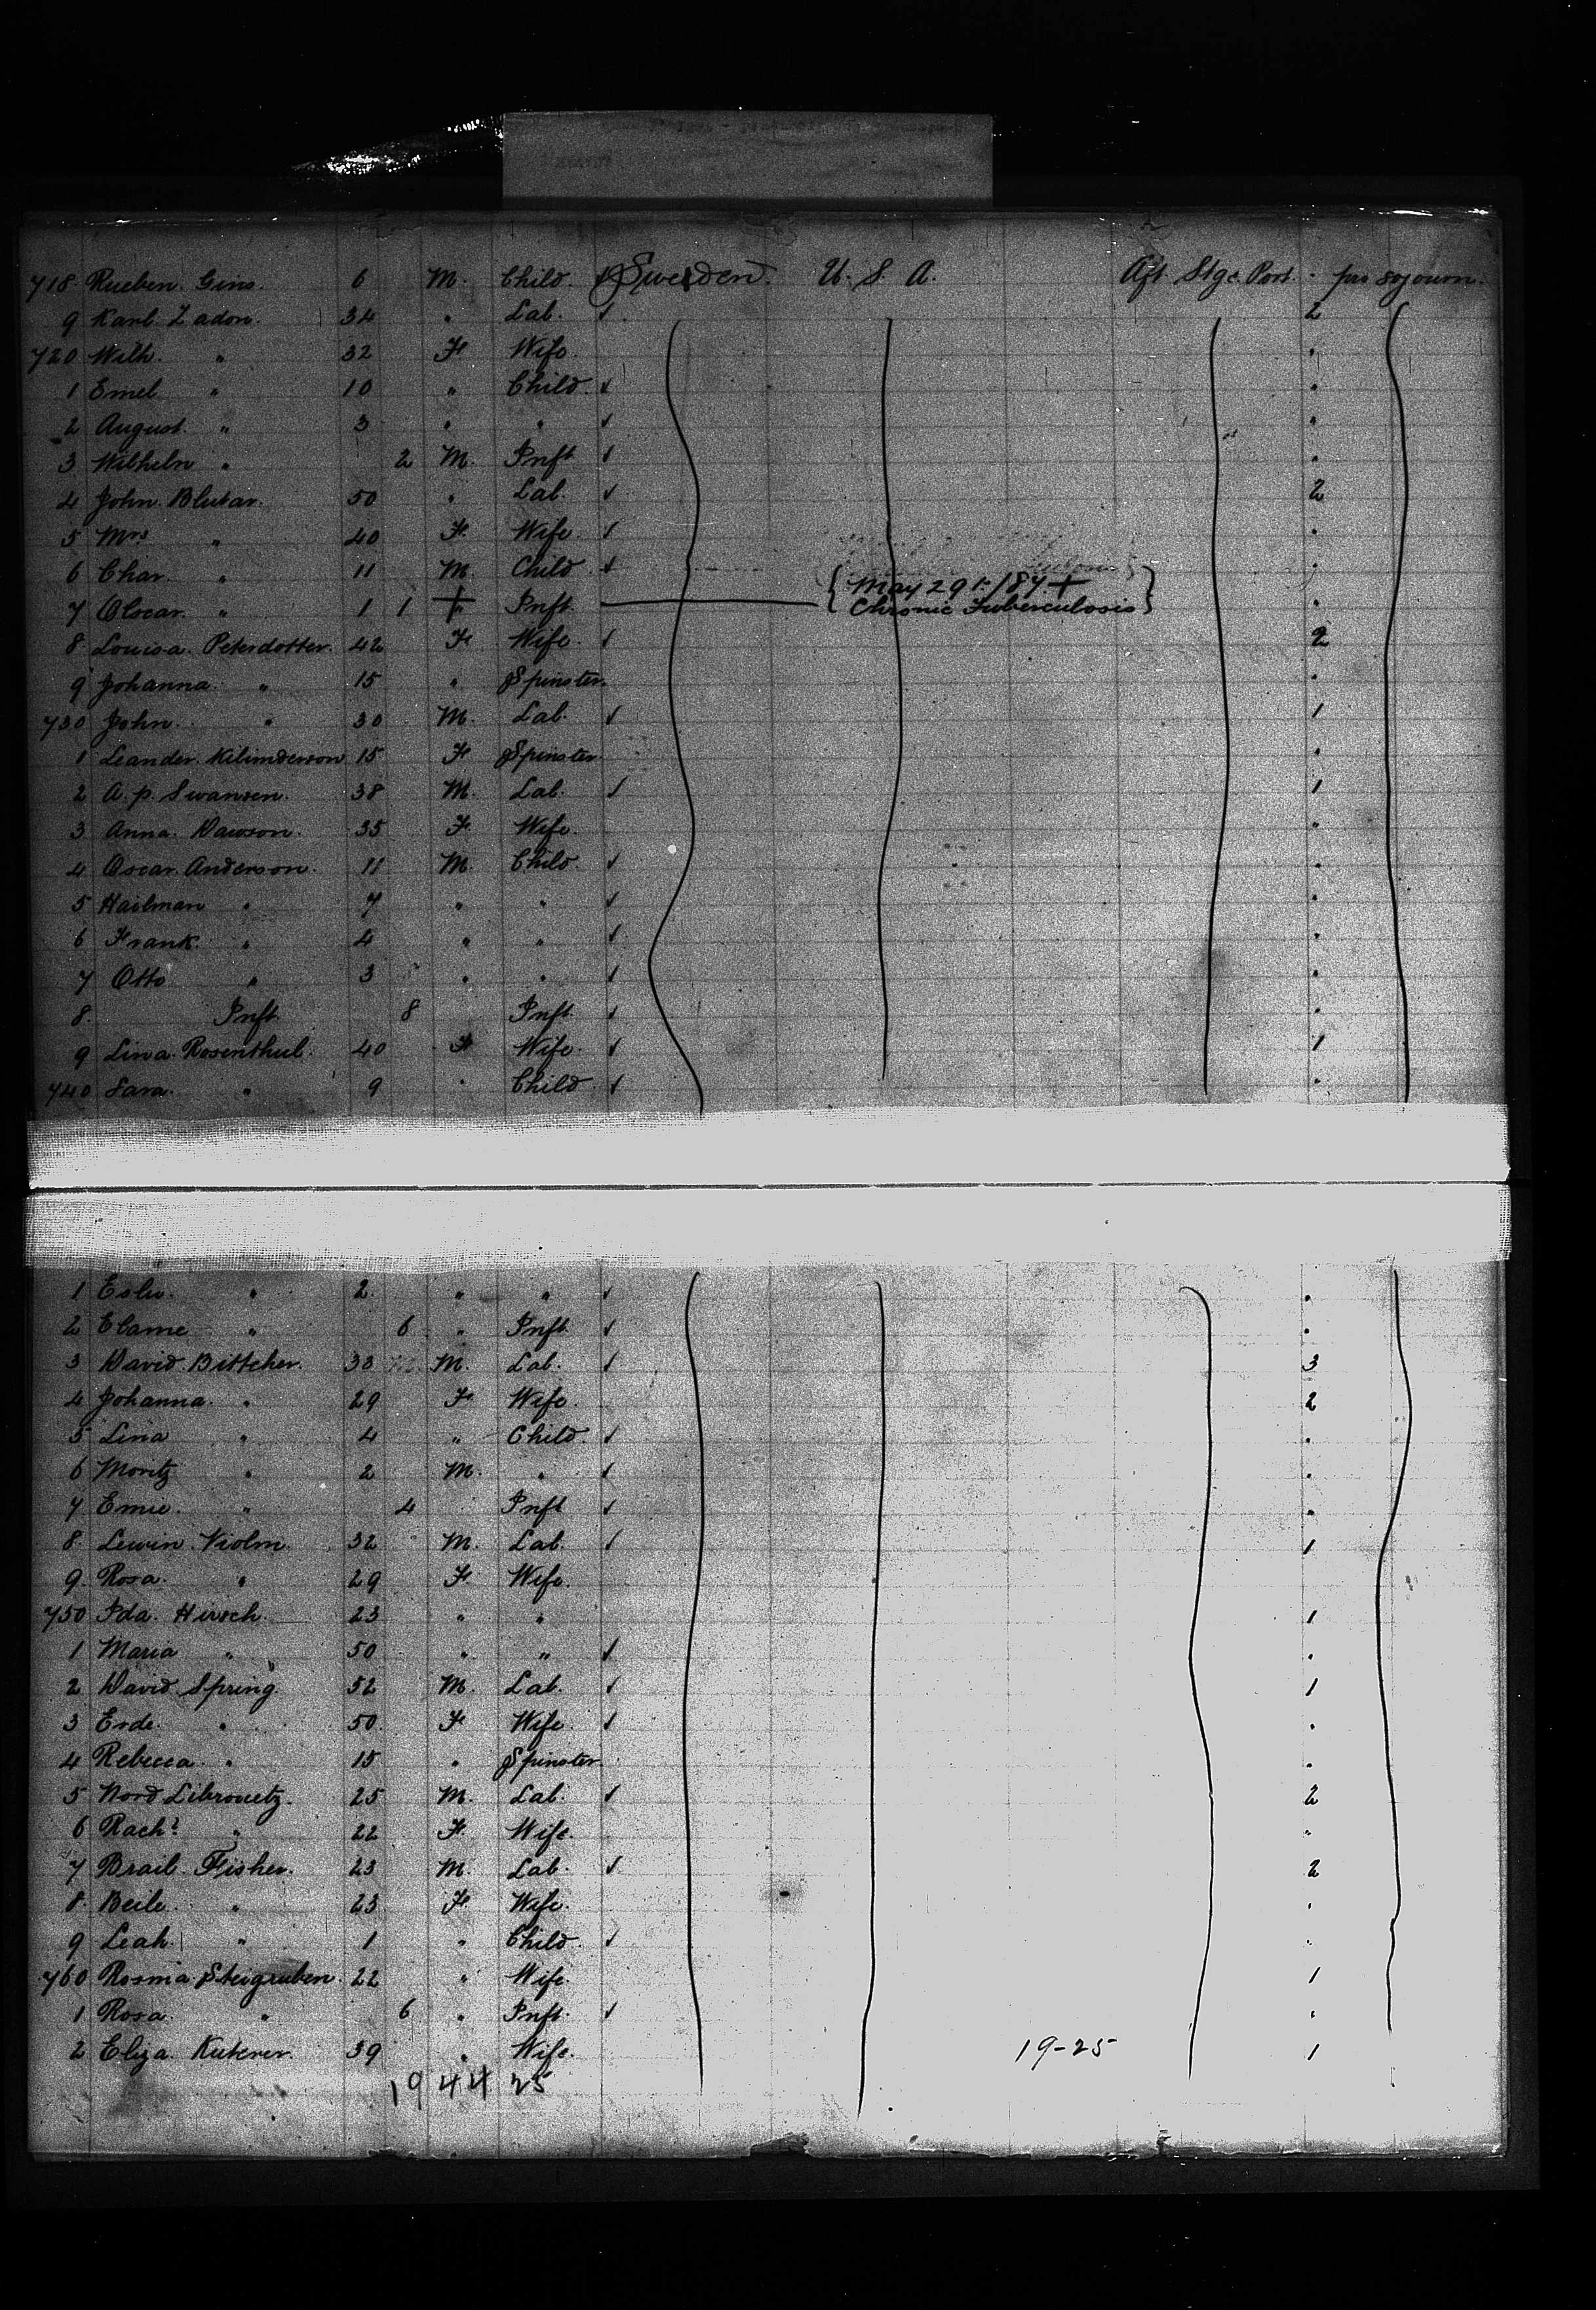 718 Rueben. Gins. 6 M. Child. ✓ Sweden. U. S. A. Aft. Stge. Port. · pro sojourn.
9 Karl. Zadon. 34 " Lab. ✓ 2
720 Wilh. " 32 F Wife. "
1 Emel " 10 " Child. ✓ "
2 August. " 3 " " ✓ "
3 Wilhelm " 2 M. Inft ✓ "
4 John. Blutar. 50 " Lab. ✓ 2
5 Mrs " 40 F. Wife. ✓ "
6 Char. " 11 M. Child. ✓ "
{ May 29th /87. + }
7 Oscar. " 1 1 + Inft. { Chronic Tuberculosis } "
8. Louisa. Peterdotter. 42 F Wife. ✓ 2
9 Johanna. " 15 " Spinster. "
730 John. " 30 M. Lab. ✓ 1
1 Leander. Kilimderson 15 F Spinster. "
2 A. p. Swansen. 38 M. Lab. ✓ 1
3 Anna. Dawson. 35 F. Wife. "
4 Oscar. Anderson. 11 M. Child. ✓ "
5 Hailman " 7 " " ✓ "
6 Frank. " 4 " " ✓ "
7 Otto " 3 " " ✓ "
8. Inft. 8 Inft. ✓ "
9 Lina. Rosenthul. 40 F Wife. ✓ 1
740 Sara. " 9 " Child. ✓ "
1 " 2. " " ✓ "
2 " 6 " Inft. ✓ "
3 David. Bittcher. 38 M. Lab. ✓ 3
4 Johanna. " 29 F. Wife. 2
5 Lina " 4 " Child. ✓ "
6 Moritz " 2 M. " ✓ "
7 Emie. " 4 Inft ✓ "
8. Lewin. Violm. 32 M. Lab. ✓ 1
9. Rosa. " 29 F. Wife.
750 Ida. Hirsch. 23 " " 1
1 Maria " 50 " " ✓ "
2 David. Spring. 52 M. Lab. ✓ 1
3 Erde. " 50. F Wife. ✓ "
4 Rebecca. " 15 " Spinster "
5 Nord. Librouetz. 25 M. Lab. ✓ 2
6 Rachl " 22 F. Wife. "
7 Brail. Fisher. 23 M. Lab. ✓ 2
8. Beile. " 23 F Wife. "
9 Leah. " 1 " Child. ✓ "
760 Rosnia. Steigruben. 22 " Wife. 1
1 Rosa. " 6 " Inft. ✓ "
2 Eliza. Kuterer. 39 " Wife. 19-25 1
19 44 25